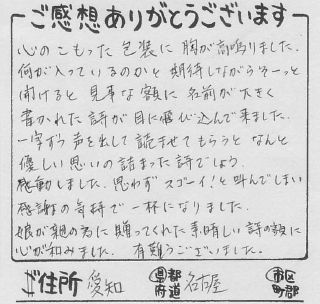 ご感想ありがとうございます
心のこもった包装に胸が高鳴りました。
何が入っているのかと期待しながらそーっと
開けると見事な額に名前が大きく
書かれた詩が目に飛び込んで来ました。
一字ずつ声を出して読ませてもらうとなんと
優しい思いの詰まった詩でしょう。
感動しました。思わずスゴーイ!と叫んでしまい
感謝の気持で一杯になりました。
娘が親の為に贈ってくれた素晴しい詩の額に
心が和みました。有難うございました。
ご住所 愛知 県都府道 名古屋 市区町郡